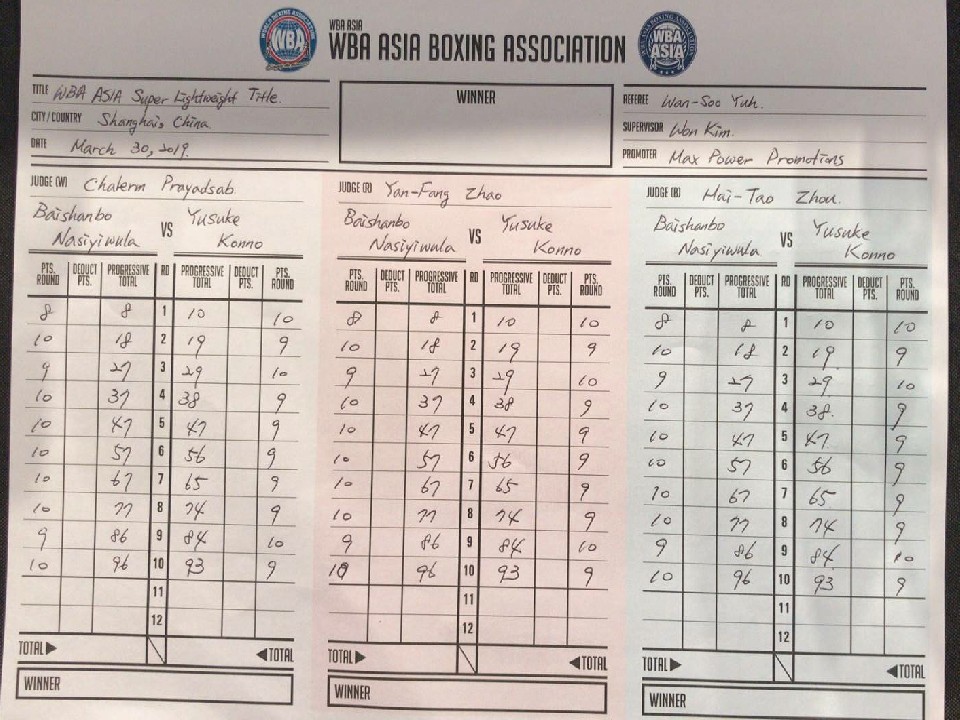 WBA ASIA
WBA ASIA BOXING ASSOCIATION
WBA
WBA ASIA
TITLE WBA ASIA Super Lightweight Title.
CITY/COUNTRY Shanghai, China
DATE March 30, 2019.
WINNER
REFEREE Wan-Soo Yuh.
SUPERVISOR Won Kim.
PROMOTER Max Power Promotions
JUDGE (W) Chalerm Prayadsab
Baishanbo Nasiyiwula VS Yusuke Konno
PTS. ROUND DEDUCT PTS. PROGRESSIVE TOTAL RD PROGRESSIVE TOTAL DEDUCT PTS. PTS. ROUND
8 8 1 10 10
10 18 2 19 9
9 27 3 29 10
10 37 4 38 9
10 47 5 47 9
10 57 6 56 9
10 67 7 65 9
10 77 8 74 9
9 86 9 84 10
10 96 10 93 9
11
12
TOTAL TOTAL
WINNER
JUDGE (R) Yan-Fang Zhao
Baishanbo Nasiyiwula VS Yusuke Konno
PTS. ROUND DEDUCT PTS. PROGRESSIVE TOTAL RD PROGRESSIVE TOTAL DEDUCT PTS. PTS. ROUND
8 8 1 10 10
10 18 2 19 9
9 27 3 29 10
10 37 4 38 9
10 47 5 47 9
10 57 6 56 9
10 67 7 65 9
10 77 8 74 9
9 86 9 84 10
10 96 10 93 9
11
12
TOTAL TOTAL
WINNER
JUDGE (B) Hai-Tao Zhou.
Baishanbo Nasiyiwula VS Yusuke Konno
PTS. ROUND DEDUCT PTS. PROGRESSIVE TOTAL RD PROGRESSIVE TOTAL DEDUCT PTS. PTS. ROUND
8 8 1 10 10
10 18 2 19 9
9 27 3 29 10
10 37 4 38. 9
10 47 5 47 9
10 57 6 56 9
10 67 7 65 9
10 77 8 74 9
9 86 9 84 10
10 96 10 93 9
11
12
TOTAL TOTAL
WINNER